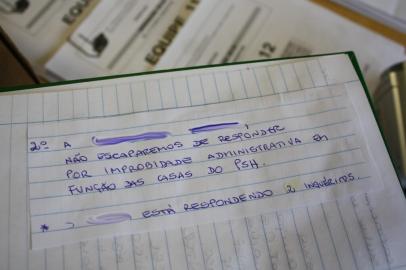 EQUIPE 11
12
2º - A
NÃO ESCAPAREMOS DE RESPONDER
POR IMPROBIDADE ADMINISTRATIVA EM
FUNÇÃO DAS CASAS DO PSH.
* ESTÁ RESPONDENDO 2 INQUÉRITOS.